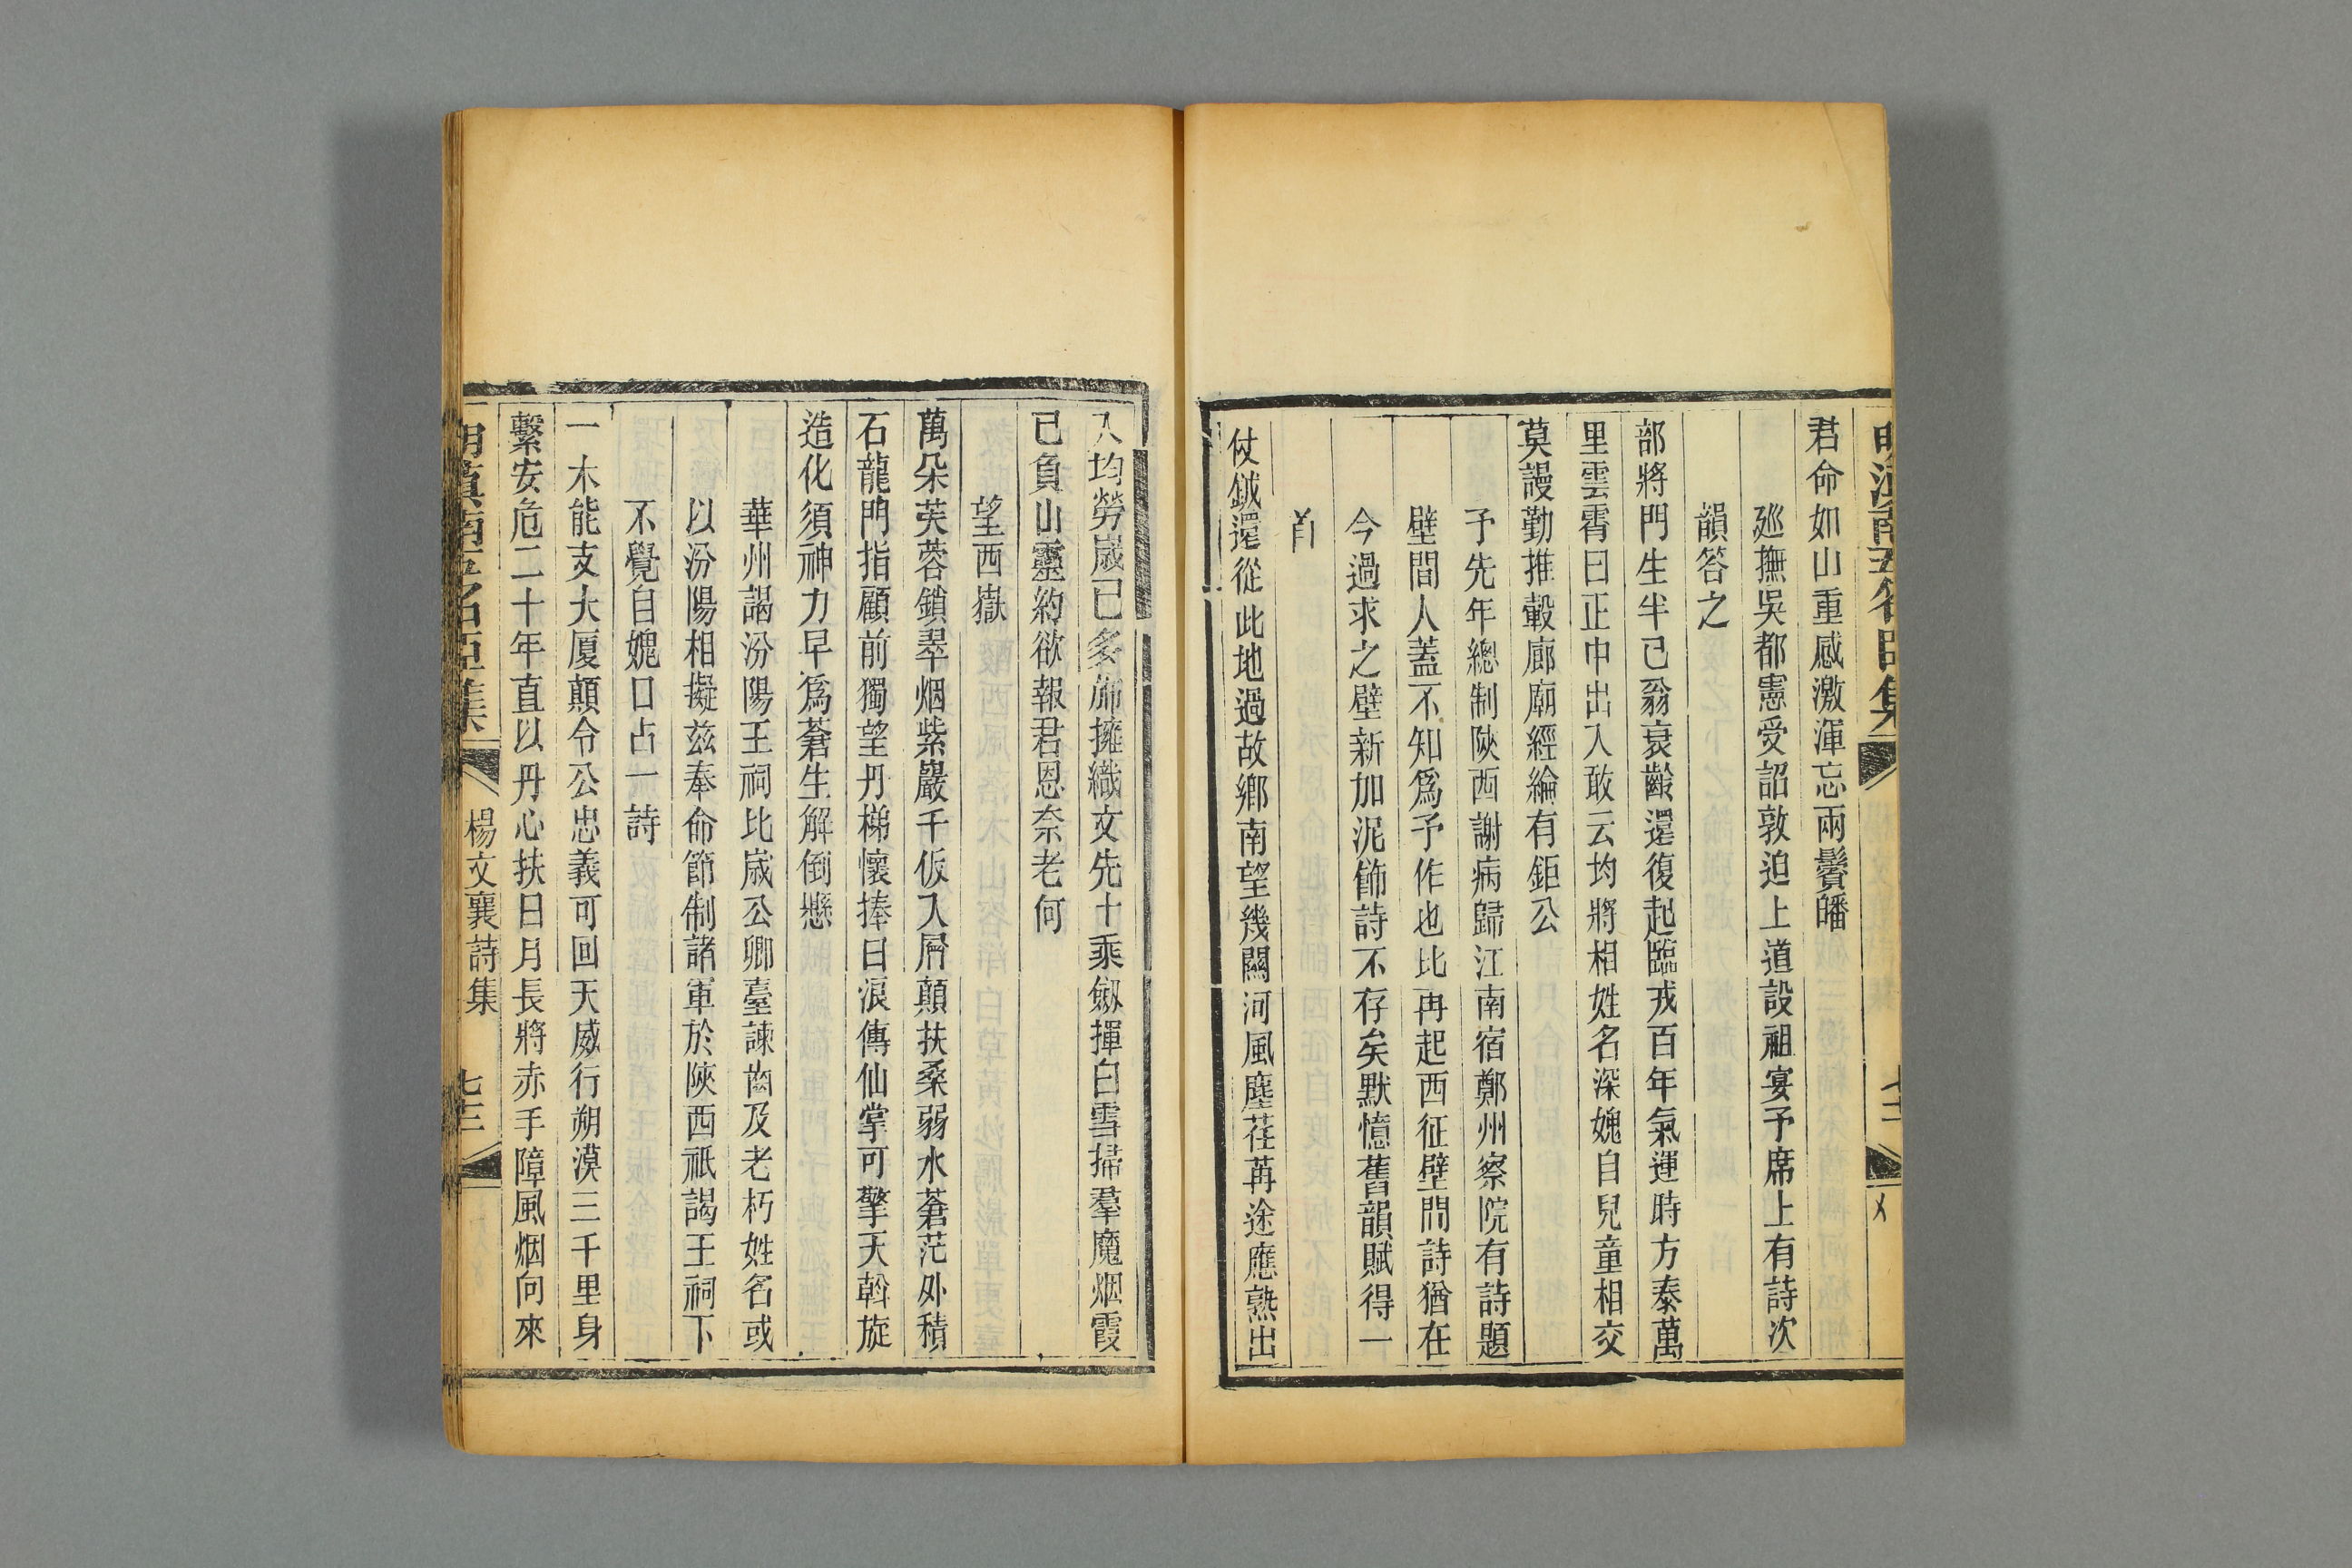 君命如山重感激渾忘兩鬢皤
廵撫吳都憲受詔敦迫上道設祖宴予席上有詩次
韻答之
部將門生半已翁衰齡還復起臨戎百年氣運時方泰萬
里雲霄日正中出入敢云均將相姓名深媿自兒童相交
莫謾勤推轂廊廟經綸有鉅公
予先年總制陝西謝病歸江南宿鄭州察院有詩題
壁間人蓋不知爲予作也比再起西征壁間詩猶在
今過求之壁新加泥飾詩不存矣默憶舊韻賦得一
首
仗鉞還從此地過故鄉南望幾關河風塵荏苒途應熟出
入均勞歲已多斾擁織文先十乘劔揮白雪掃羣魔烟霞
已負山靈約欲報君恩奈老何
望西嶽
萬朵芙蓉鎖翠烟紫巖千仮入層顛扶桑弱水蒼茫外積
石龍門指顧前獨望丹梯懷捧日浪傳仙掌可擎天斡旋
造化須神力早爲蒼生解倒懸
華州謁汾陽王祠比歲公卿臺諫啣及老朽姓名或
以汾陽相擬兹奉命節制諸軍於陝西祗謁王祠下
不覺自媿口占一詩
一木能支大厦顛令公忠義可回天威行朔漠三千里身
繫安危二十年直以丹心扶日月長將赤手障風烟向來
明滇南五名臣集
楊文襄詩集
七三